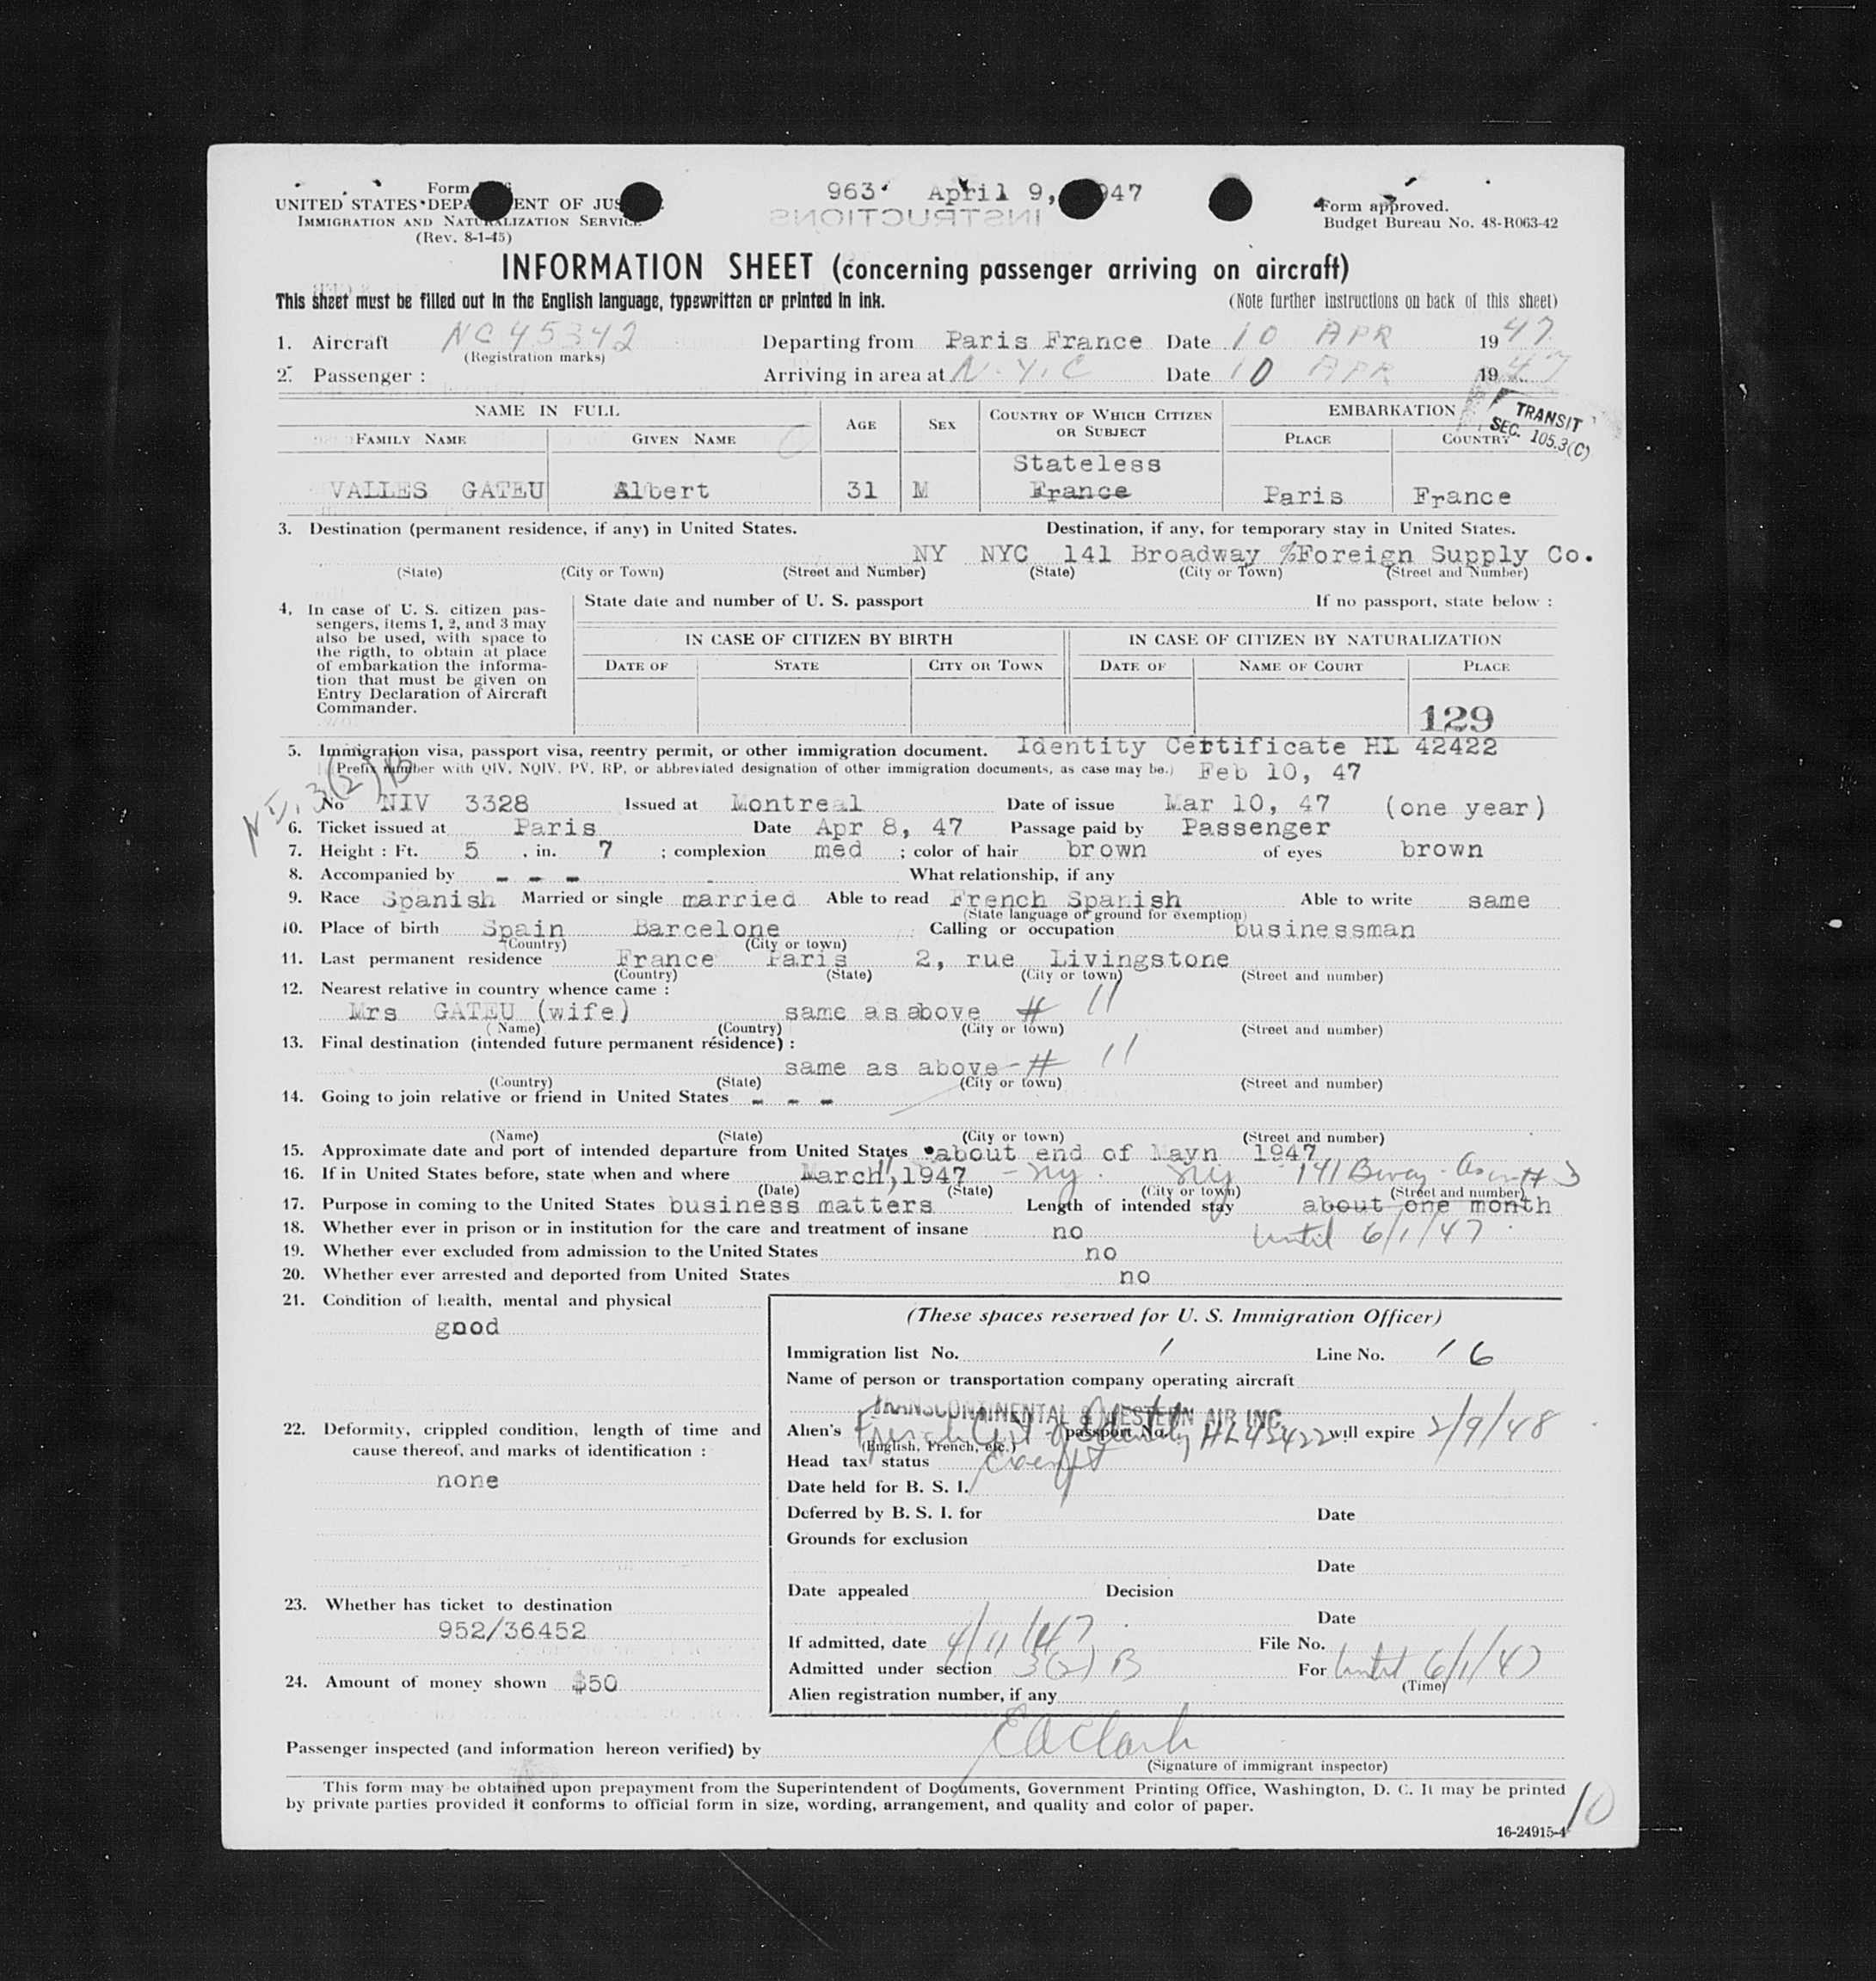 Form
963 April 9, 1947
UNITED STATES DEPARTMENT OF JUSTICE
Form approved.
IMMIGRATION AND NATURALIZATION SERVICE
INSTRUCTIONS
Budget Bureau No. 48-R063-42
(Rev. 8-1-45)
INFORMATION SHEET (concerning passenger arriving on aircraft)
This sheet must be filled out in the English language, typewritten or printed in ink. (Note further instructions on back of this sheet)
1. Aircraft NC 45342 Departing from Paris France Date 10 APR 1947
(Registration marks)
2. Passenger : Arriving in area at N.Y.C Date 10 APR 1947
TRANSIT
SEC. 105.3(C)
NAME IN FULL AGE SEX COUNTRY OF WHICH CITIZEN OR SUBJECT EMBARKATION
FAMILY NAME GIVEN NAME PLACE COUNTRY
Stateless
VALLES GATEU Albert 31 M France Paris France
3. Destination (permanent residence, if any) in United States. Destination, if any, for temporary stay in United States.
NY NYC 141 Broadway %Foreign Supply Co.
(State) (City or Town) (Street and Number) (State) (City or Town) (Street and Number)
4. In case of U. S. citizen pas-
sengers, items 1, 2, and 3 may
also be used, with space to
the rigth, to obtain at place
of embarkation the informa-
tion that must be given on
Entry Declaration of Aircraft
Commander.
State date and number of U. S. passport If no passport, state below :
IN CASE OF CITIZEN BY BIRTH IN CASE OF CITIZEN BY NATURALIZATION
DATE OF STATE CITY OR TOWN DATE OF NAME OF COURT PLACE
129
5. Immigration visa, passport visa, reentry permit, or other immigration document. Identity Certificate HL 42422
(Prefix number with QIV, NQIV, PV, RP, or abbreviated designation of other immigration documents, as case may be.) Feb 10, 47
3(2)B
No NIV 3328 Issued at Montreal Date of issue Mar 10, 47 (one year)
6. Ticket issued at Paris Date Apr 8, 47 Passage paid by Passenger
7. Height : Ft. 5 , in. 7 ; complexion med ; color of hair brown of eyes brown
8. Accompanied by - - - What relationship, if any
9. Race Spanish Married or single married Able to read French Spanish Able to write same
(State language or ground for exemption)
10. Place of birth Spain Barcelone Calling or occupation businessman
(Country) (City or town)
11. Last permanent residence France Paris 2, rue Livingstone
(Country) (State) (City or town) (Street and number)
12. Nearest relative in country whence came :
Mrs GATEU (wife) same as above # 11
(Name) (Country) (City or town) (Street and number)
13. Final destination (intended future permanent résidence) :
same as above - # 11
(Country) (State) (City or town) (Street and number)
14. Going to join relative or friend in United States - - -
(Name) (State) (City or town) (Street and number)
15. Approximate date and port of intended departure from United States about end of Mayn 1947
16. If in United States before, state when and where March, 1947 - NY. NY 141 Bway. as in # 3
(Date) (State) (City or town) (Street and number)
17. Purpose in coming to the United States business matters Length of intended stay about one month
18. Whether ever in prison or in institution for the care and treatment of insane no until 6/1/47
19. Whether ever excluded from admission to the United States no
20. Whether ever arrested and deported from United States no
21. Condition of health, mental and physical
good
(These spaces reserved for U. S. Immigration Officer)
Immigration list No. 1 Line No. 16
Name of person or transportation company operating aircraft
TRANSCONTINENTAL & WESTERN AIR INC.
22. Deformity, crippled condition, length of time and
cause thereof, and marks of identification :
none
Alien's French Cert of Identity passport No. HL42422 will expire 2/9/48
(English, French, etc.)
Head tax status Exempt
Date held for B. S. I.
Deferred by B. S. I. for Date
Grounds for exclusion
Date
Date appealed Decision
23. Whether has ticket to destination
952/36452
Date
If admitted, date 4/11/47 File No.
Admitted under section 3(2) B For Until 6/1/47
(Time)
24. Amount of money shown $50
Alien registration number, if any
Passenger inspected (and information hereon verified) by E A Clark
(Signature of immigrant inspector)
This form may be obtained upon prepayment from the Superintendent of Documents, Government Printing Office, Washington, D. C. It may be printed
by private parties provided it conforms to official form in size, wording, arrangement, and quality and color of paper.
10
16-24915-4